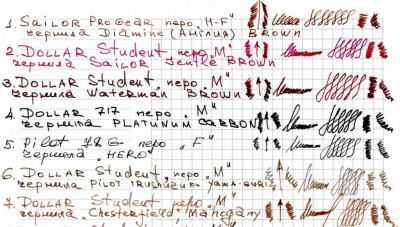 1. SAILOR PROGEAR перо „H-F"
чернила Diamine (Англия) BROWN
2. DOLLAR Student перо „M"
чернила SAILOR JENTLE BROWN
3. DOLLAR Student, перо „M"
чернила WATERMAN BROWN
4. DOLLAR 717 перо „M"
чернила PLATINUM CARBON
5. Pilot 78G перо „F"
чернила „HERO"
6. DOLLAR Student, перо „M"
чернила PILOT IRUSHIZUKU YAMA-GURI
7. DOLLAR Student, перо „M"
чернила „Chesterfield, Mahogany